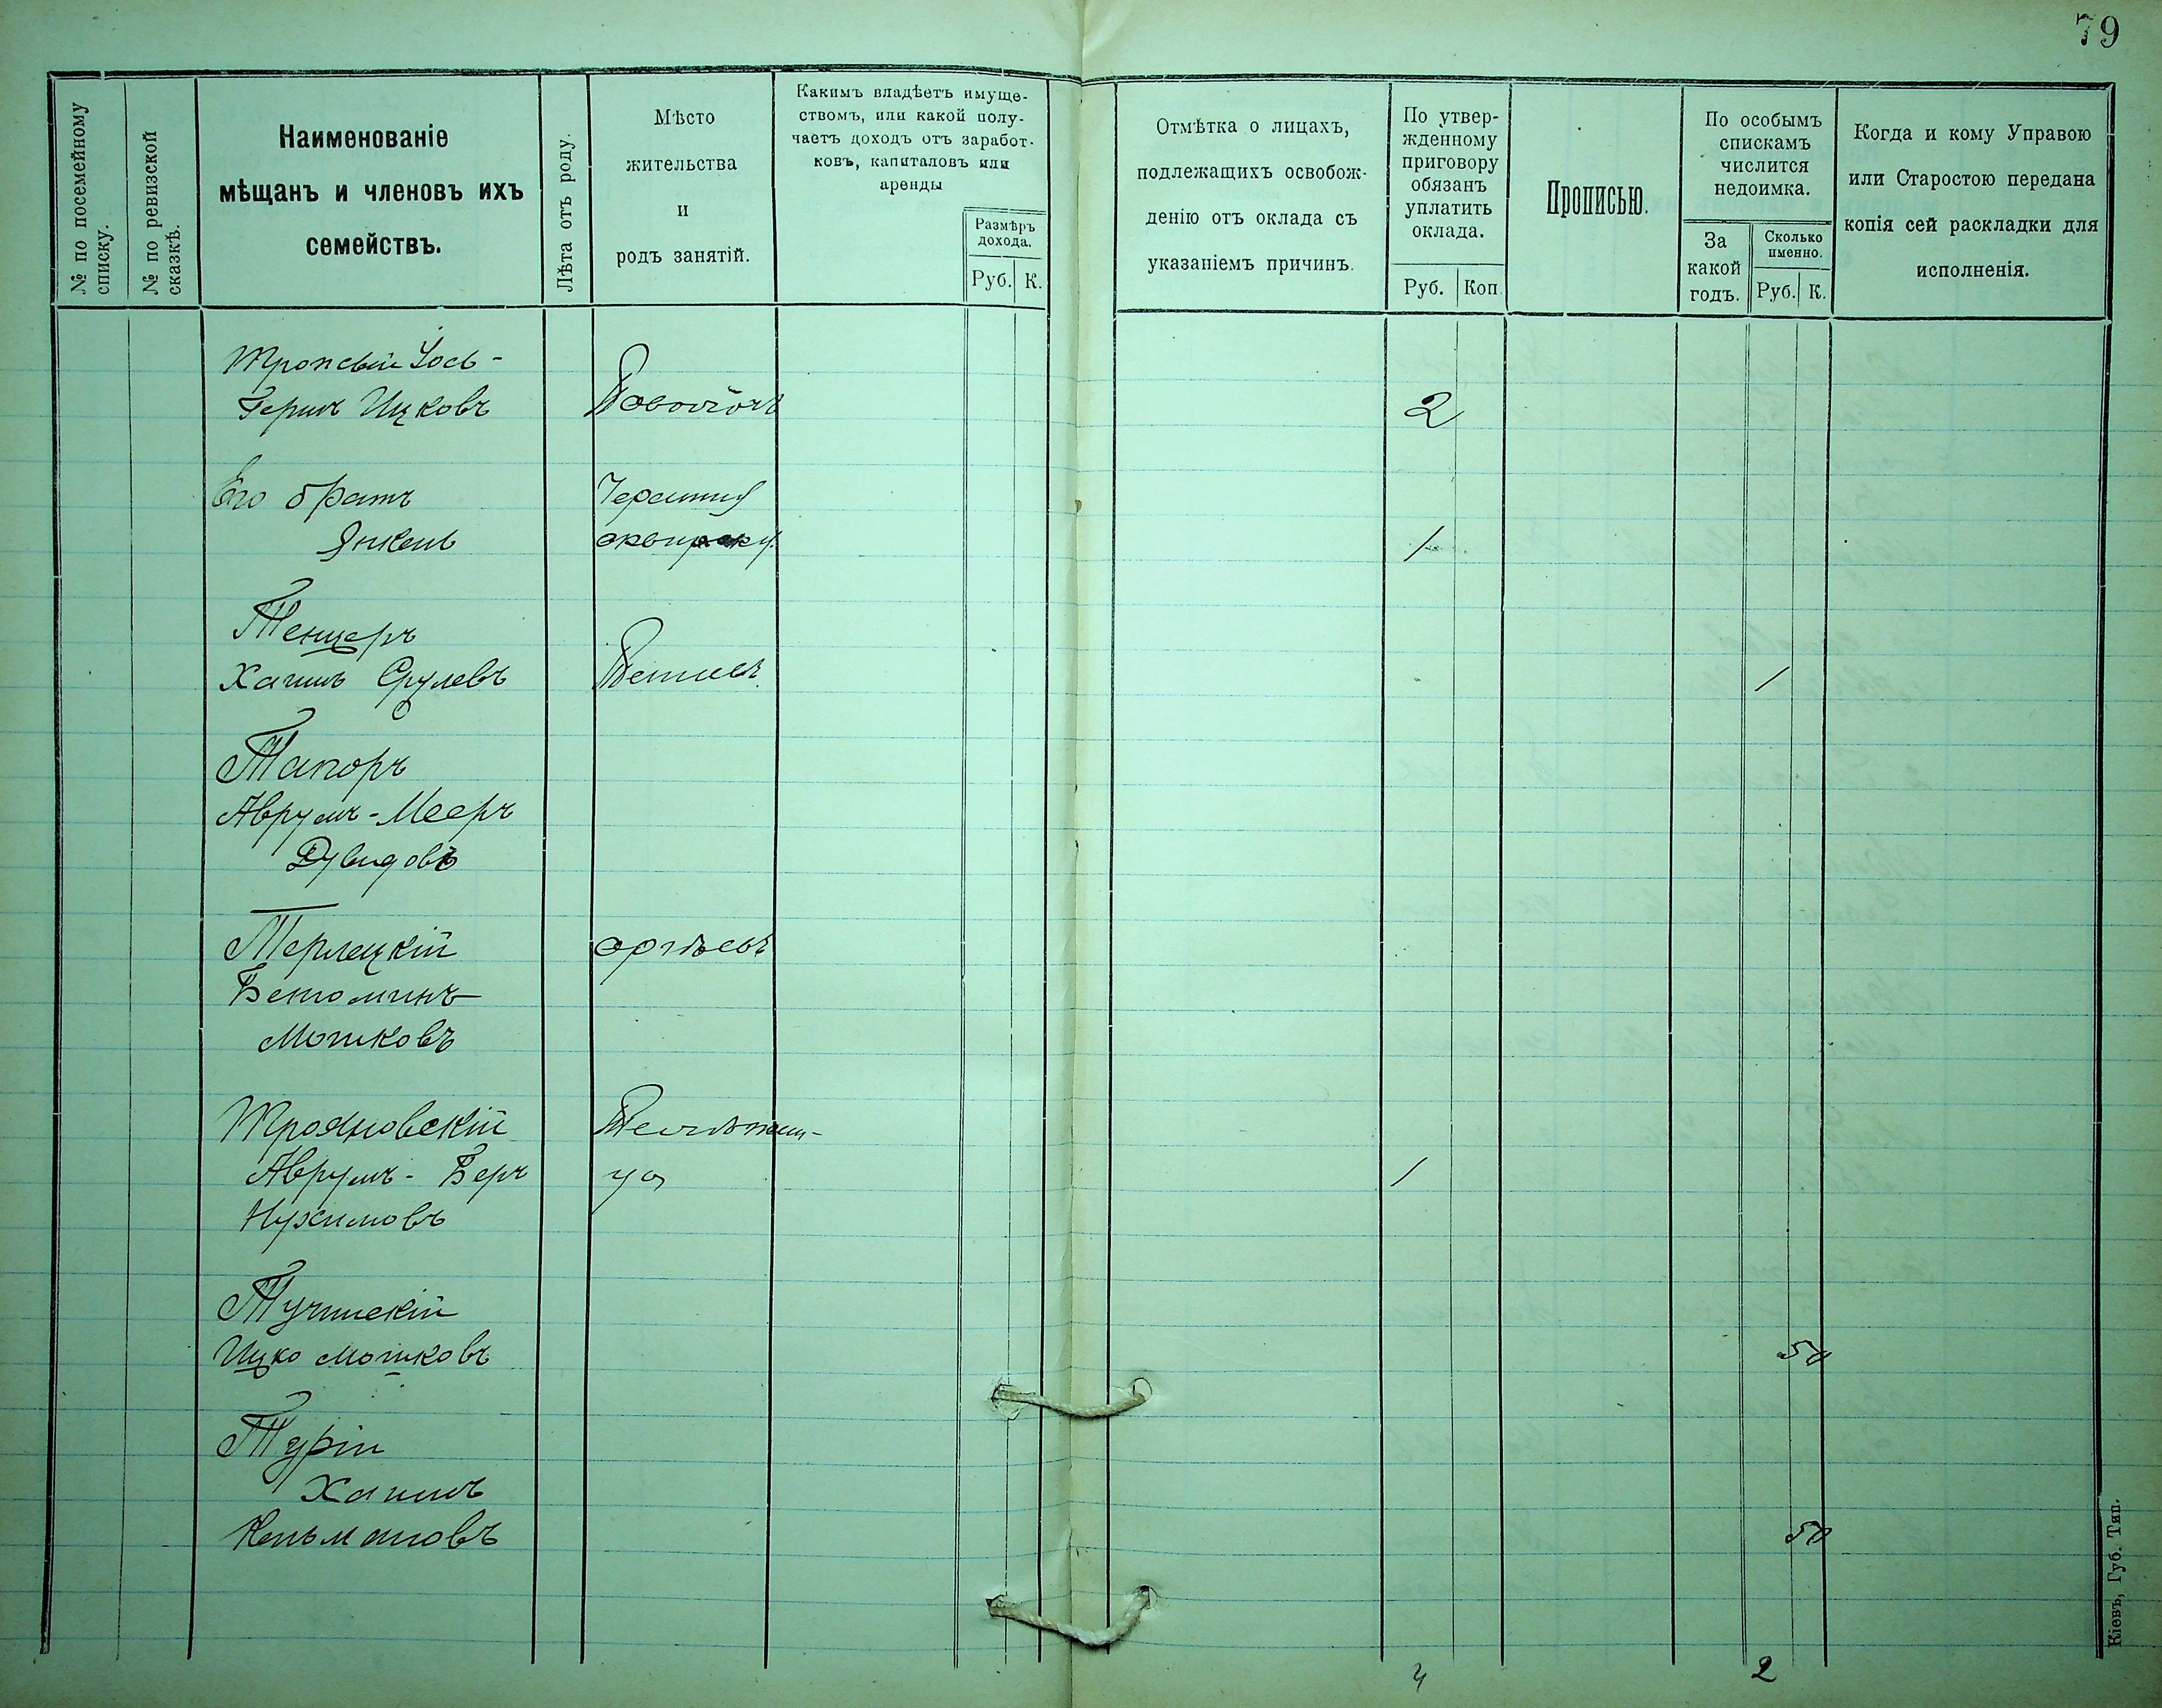 79
№ по посемейному
списку.
№ по ревизской
сказкѣ.
Наименованіе
мѣщанъ и членовъ ихъ
семействъ.
Лѣта отъ роду.
Мѣсто
жительства
и
родъ занятій.
Какимъ владѣетъ имуще-
ствомъ, или какой полу-
чаетъ доходъ отъ заработ-
ковъ, капиталовъ или
аренды
Размѣръ
дохода.
Руб. К.
Отмѣтка о лицахъ,
подлежащихъ освобож-
денію отъ оклада съ
указаніемъ причинъ.
По утвер-
жденному
приговору
обязанъ
уплатить
оклада.
Руб. Коп.
Прописью.
По особымъ
спискамъ
числится
недоимка.
За
какой
годъ.
Сколько
именно.
Руб. К.
Когда и кому Управою
или Старостою передана
копія сей раскладки для
исполненія.
Іось-
Гершъ Ицковъ 2
Его братъ
Янкель 1
Тенцеръ
Хаимъ Срулевъ 1
Тапоръ
Аврумъ-Мееръ
Дувидовъ
Терлецкій
Беніоминъ
Мошковъ
Трояновскій
Аврумъ-Беръ 1
Нухимовъ
Тучинскій
Ицко Мошковъ 50
Турій
Хаимъ
Кельмановъ 50
4 2
Кіевъ, Губ. Тип.